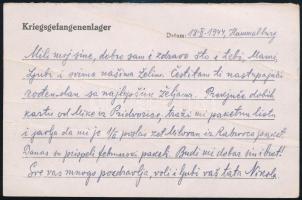 Kriegsgefangenenlager
Datum: 18.II.1944, Hammelburg
Mili moj sine, dobro sam i zdravo što i tebi, Mami,
Ljubi i svima našima želim. Čestitam ti nastupajući
rođendan sa najlepšim željama. Prekjuče dobih
kartu od Mike iz Pridvorice, kaže mi paketnu listu
i javlja da mi je 1/II poslao zet Milovan iz paket
Danas su prispeli februarski paketi. Budi mi dobar sin i brat!
Sve vas mnogo pozdravlja, voli i ljubi vaš tata Nikola.